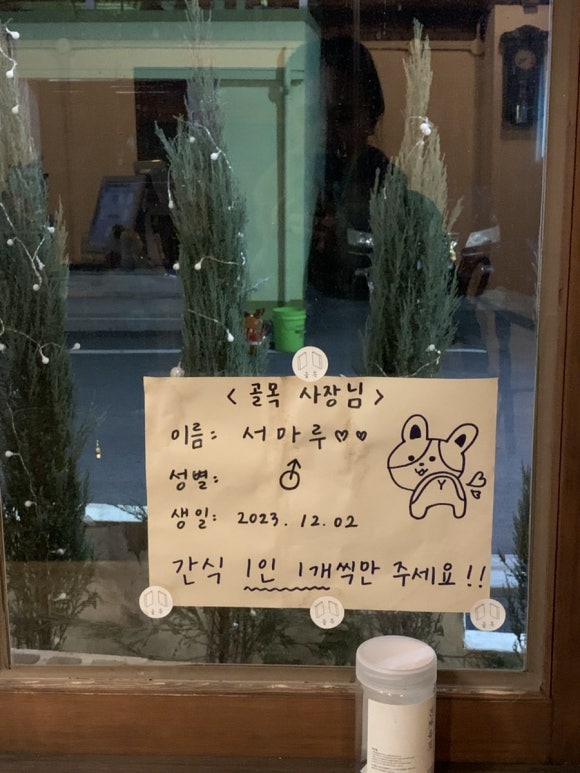 < 골목 사장님 >
이름: 서마루♡♡
성별: ♂
생일: 2023. 12. 02
간식 1인 1개씩만 주세요!!